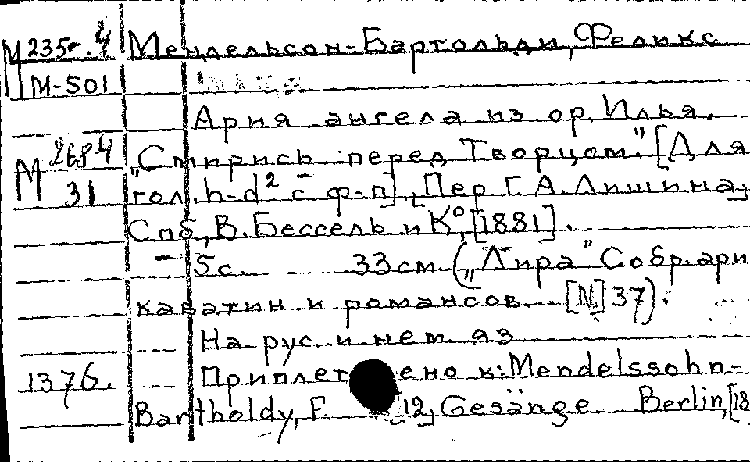 М 235г.4 Мендельсон-Бартольди, Феликс
М-501
Ария ангела из ор. Илья.
М 31 „Смирись перед Творцом." [Для
гол. h-d² с ф-п], [Пер Г. А. Лишина]
Спб, В. Бессель и К°, [1881].
5с. 33см. („Лира" Собр. ари
каватин и романсов. [N] 37).
На рус. и нем яз
1376. Приплетено к: Mendelssohn-
Bartholdy, F. [12] Gesänge. Berlin, [18